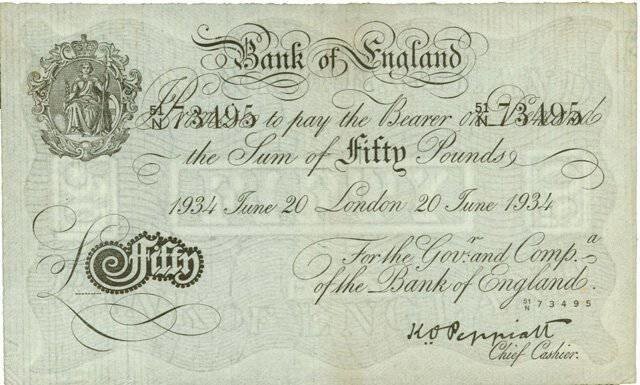 Bank of England
51/N 73495 51/N 73495
I Promise to pay the Bearer on Demand
the Sum of Fifty Pounds
1934 June 20 London 20 June 1934
For the Govr. and Compa.
of the Bank of England.
51/N 73495
£Fifty
K.O. Peppiatt
Chief Cashier.